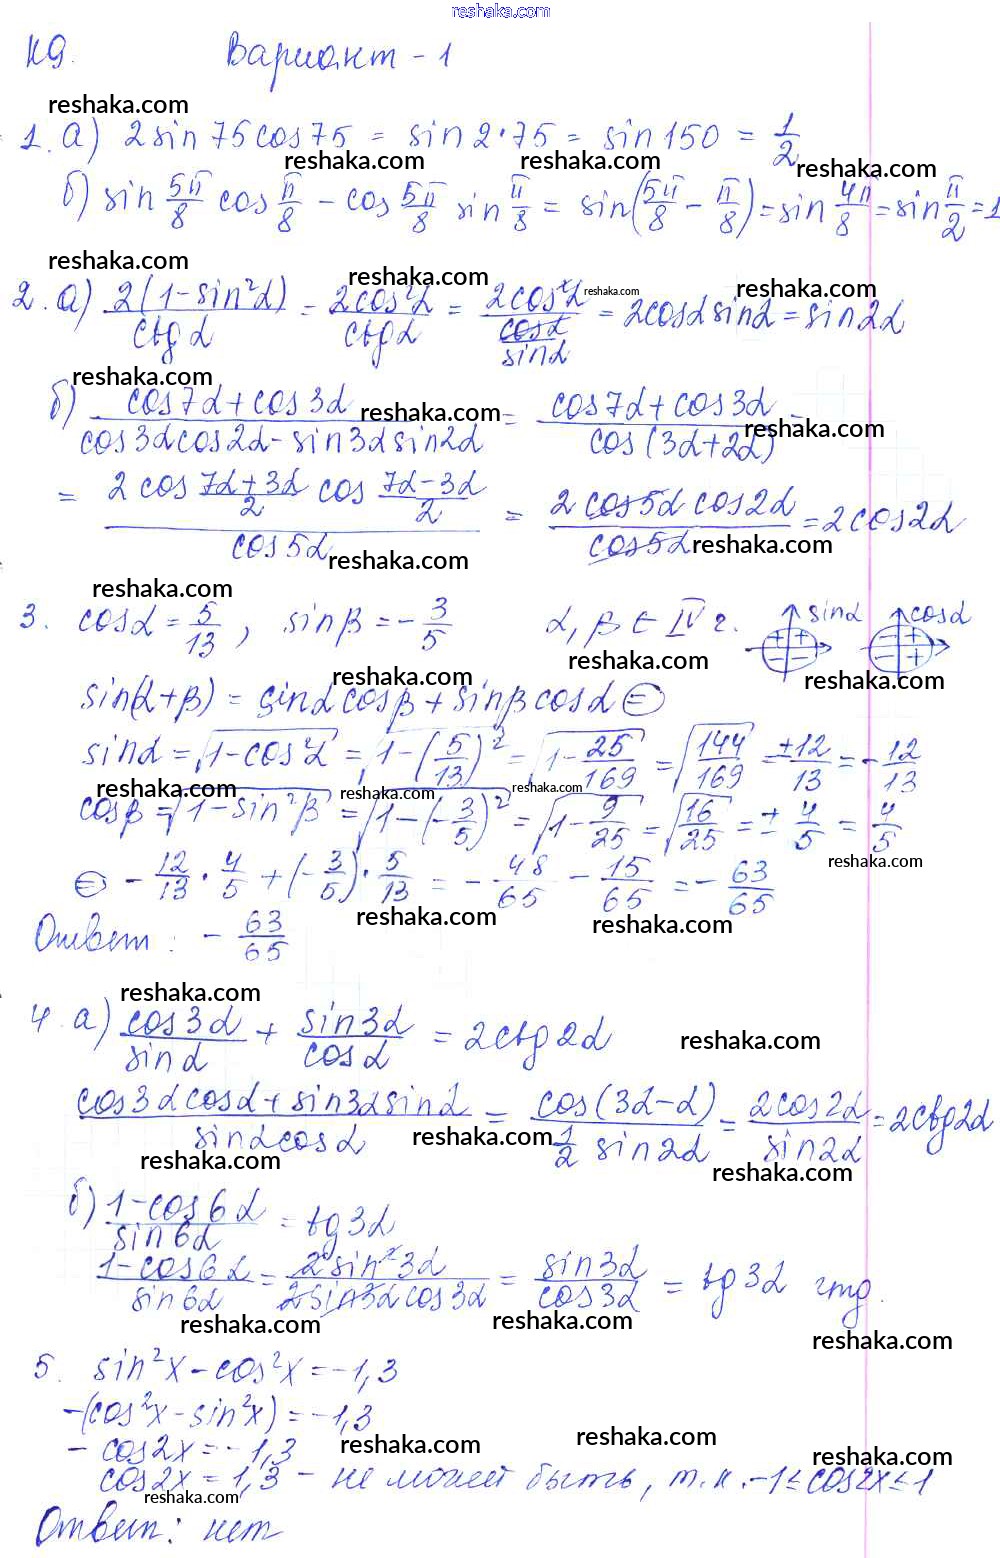 reshaka.com
К9. Вариант - 1
reshaka.com
1. а) 2sin 75 cos 75 = sin 2·75 = sin 150 = 1/2
reshaka.com reshaka.com reshaka.com
б) sin 5π/8 cos π/8 - cos 5π/8 sin π/8 = sin(5π/8 - π/8) = sin 4π/8 = sin π/2 = 1
reshaka.com reshaka.com reshaka.com reshaka.com
2. а) 2(1-sin²α)/ctg α = 2cos²α/ctg α = 2cos²α/(cosα/sinα) = 2cosα sinα = sin2α
reshaka.com reshaka.com reshaka.com
б) (cos7α + cos3α)/(cos3αcos2α - sin3αsin2α) = (cos7α + cos3α)/cos(3α+2α) =
= (2cos (7α+3α)/2 cos (7α-3α)/2)/cos5α = (2cos5α cos2α)/cos5α = 2cos2α
reshaka.com reshaka.com
reshaka.com
3. cosα = 5/13, sinβ = -3/5 α, β ∈ IV г. sinα + + - - cosα - + - +
reshaka.com reshaka.com
sin(α+β) = sinα cosβ + sinβ cosα ⊜
sinα = √(1-cos²α) = √(1-(5/13)²) = √(1-25/169) = √(144/169) = ±12/13 = -12/13
reshaka.com reshaka.com reshaka.com
cosβ = √(1-sin²β) = √(1-(-3/5)²) = √(1-9/25) = √(16/25) = ±4/5 = 4/5
reshaka.com
⊜ -12/13 · 4/5 + (-3/5) · 5/13 = -48/65 - 15/65 = -63/65
reshaka.com reshaka.com
Ответ: -63/65
reshaka.com
4. а) cos3α/sinα + sin3α/cosα = 2ctg2α
reshaka.com
(cos3αcosα + sin3αsinα)/(sinαcosα) = cos(3α-α)/(1/2 sin2α) = 2cos2α/sin2α = 2ctg2α
reshaka.com reshaka.com reshaka.com
б) (1-cos6α)/sin6α = tg3α
(1-cos6α)/sin6α = 2sin²3α/(2sin3αcos3α) = sin3α/cos3α = tg3α чтд.
reshaka.com reshaka.com reshaka.com
5. sin²x - cos²x = -1,3
-(cos²x - sin²x) = -1,3
- cos2x = -1,3
reshaka.com reshaka.com reshaka.com
cos2x = 1,3 - не может быть, т.к. -1 ≤ cos2x ≤ 1
reshaka.com
Ответ: нет